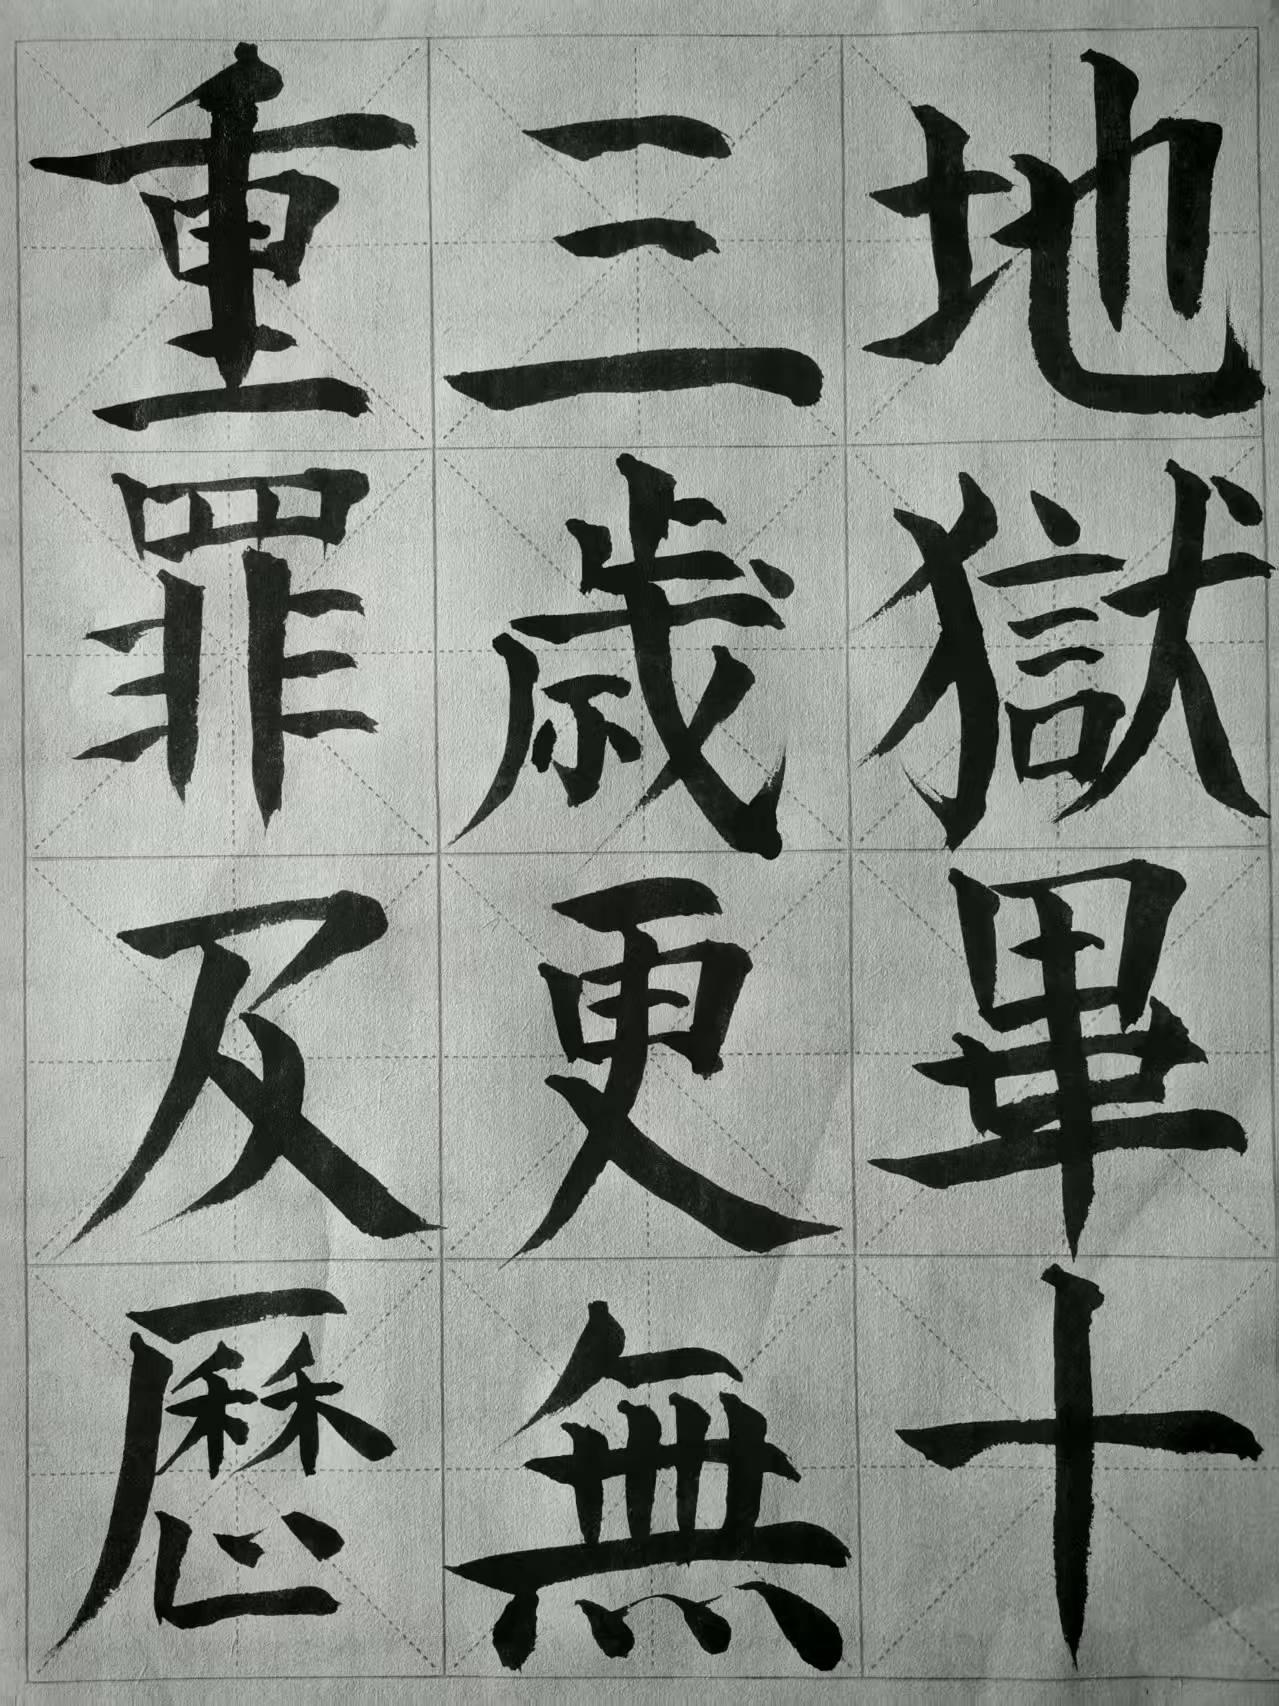 地獄畢十
三歲更無
重罪及歷